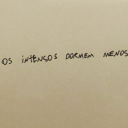 OS INTENSOS DORMEM MENOS